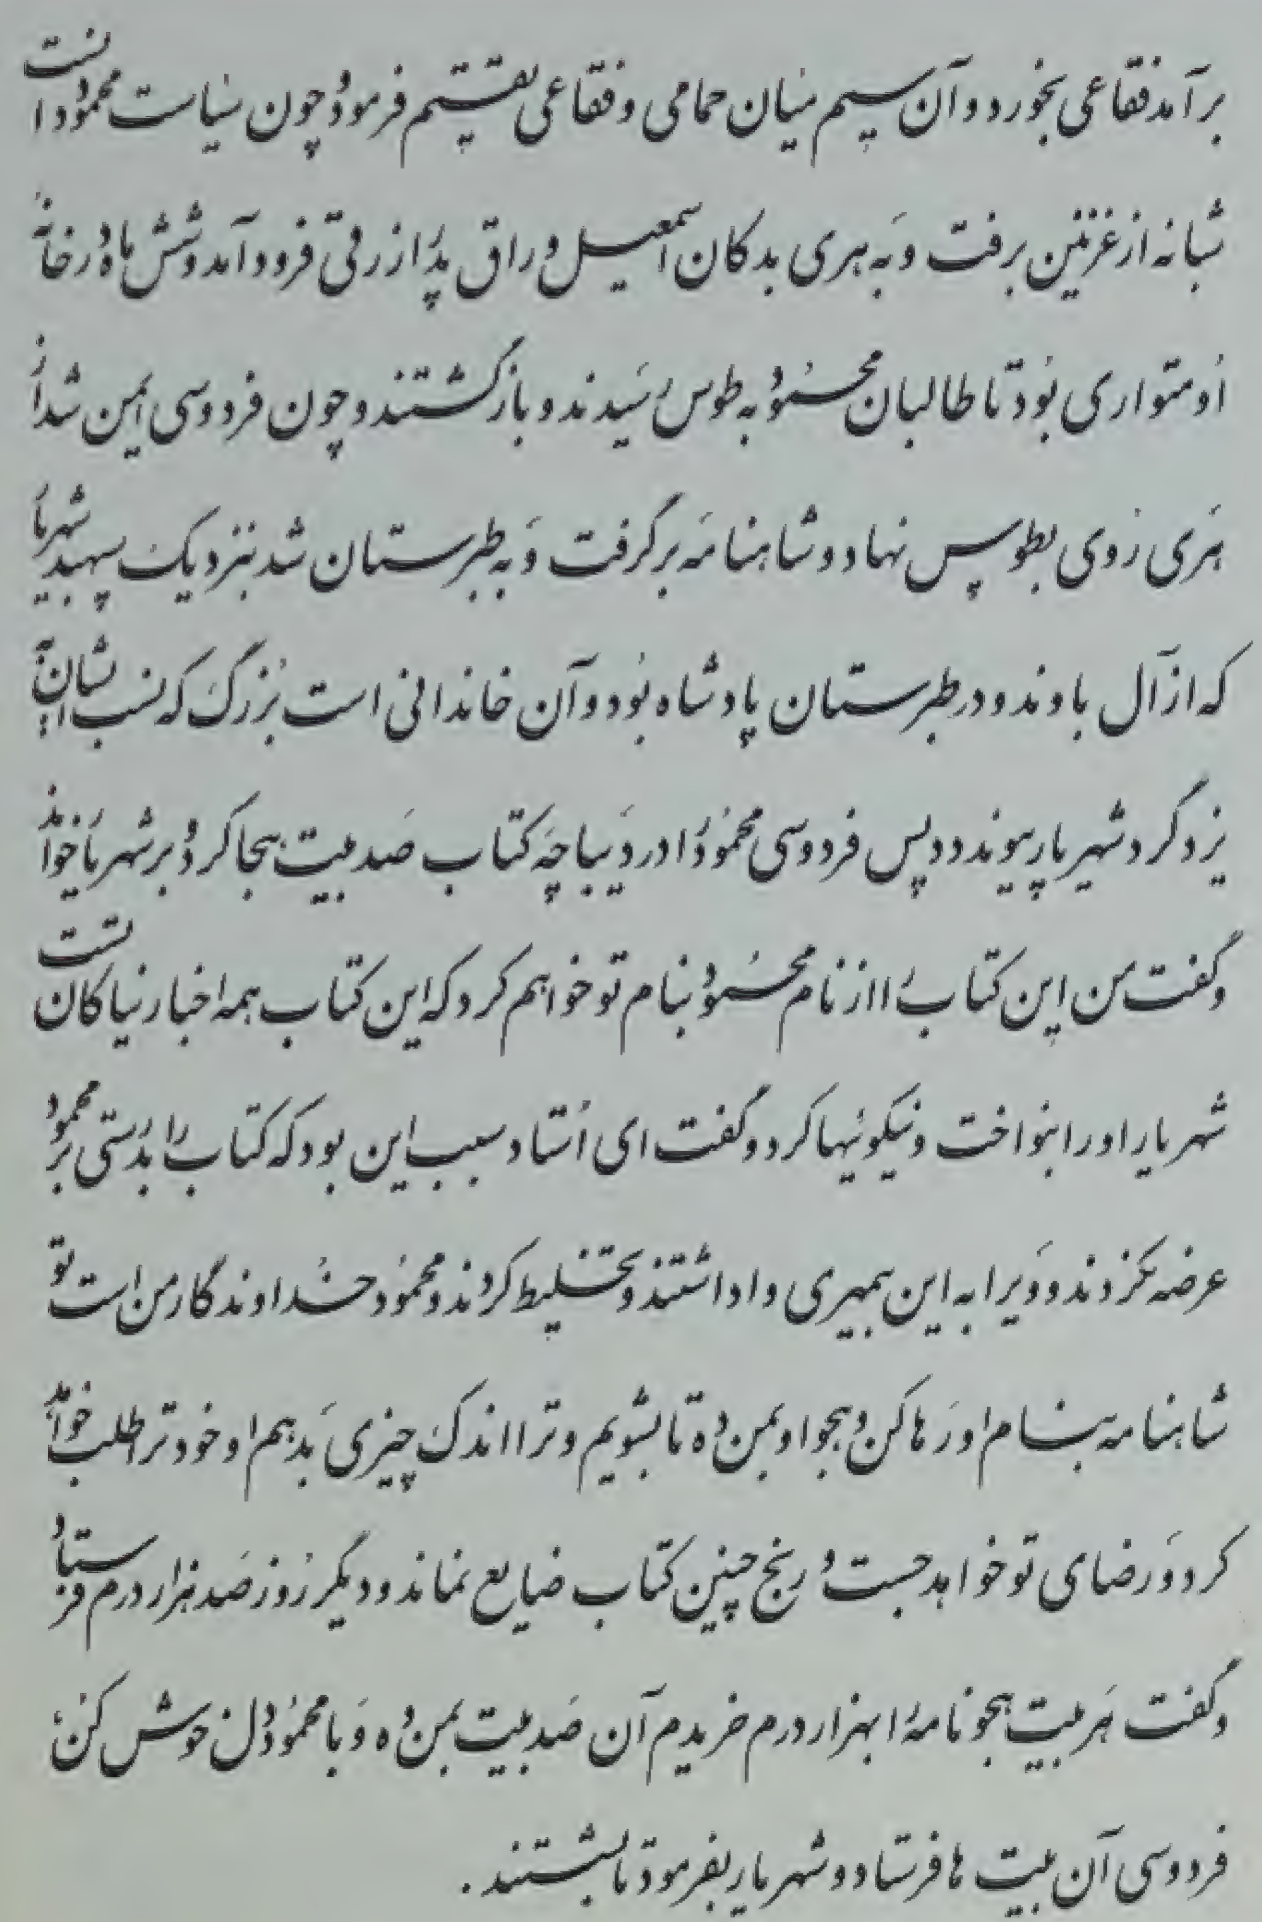 برآمد فقاعی بخورد و آن سیم میان حمامی و فقاعی تقسیم فرمود و چون سیاست محمود دانست
شبانه از غزنین برفت و به هری بدکان اسمعیل وراق پدر ازرقی فرود آمد و شش ماه در خانه
او متواری بود تا طالبان محمود به طوس رسیدند و بازگشتند و چون فردوسی ایمن شد از
هری روی بطوس نهاد و شاهنامه برگرفت و به طبرستان شد بنزدیک سپهبد شهریار
که از آل باوند و در طبرستان پادشاه بود و آن خاندانی است بزرگ که نسب ایشان به
یزدگرد شهریار پیوندد و پس فردوسی محمود را در دیباچه کتاب صد بیت هجا کرد و بر شهریار خواند
و گفت من این کتاب را از نام محمود بنام تو خواهم کرد که این کتاب همه اخبار نیاکان تست
شهریار او را بنواخت و نیکوئیها کرد و گفت ای استاد سبب این بود که کتاب را بدرستی بر محمود
عرضه نکردند و ویرا به این بمهیری واداشتند و تخلیط کردند و محمود خداوندگار من است تو
شاهنامه بنام او رها کن و هجو او بمن ده تا بشویم و ترا اندک چیزی بدهم او خود ترا طلب خواهد
کرد و رضای تو خواهد جست و رنج چنین کتاب ضایع نماند و دیگر روز صد هزار درم فرستاد
و گفت هر بیت هجونامه را بهزار درم خریدم آن صد بیت بمن ده و با محمود دل خوش کن؛
فردوسی آن بیت ها فرستاد و شهریار بفرمود تا بشستند.